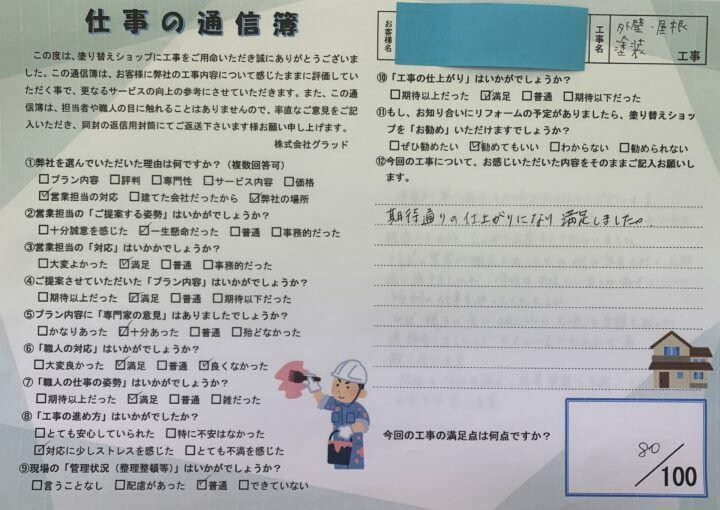 仕事の通信簿
この度は、塗り替えショップに工事をご用命いただき誠にありがとうございま
した。この通信簿は、お客様に弊社の工事内容について感じたままに評価してい
ただく事で、更なるサービスの向上の参考にさせていただきます。また、この通
信簿は、担当者や職人の目に触れることはありませんので、率直なご意見をご記
入いただき、同封の返信用封筒にてご返送下さいます様お願い申し上げます。
株式会社グラッド
①弊社を選んでいただいた理由は何ですか？（複数回答可）
□プラン内容 □評判 □専門性 □サービス内容 □価格
☑営業担当の対応 □建てた会社だったから ☑弊社の場所
②営業担当の「ご提案する姿勢」はいかがでしょうか？
□十分誠意を感じた ☑一生懸命だった □普通 □事務的だった
③営業担当の「対応」はいかかでしょうか？
□大変よかった ☑満足 □普通 □事務的だった
④ご提案させていただいた「プラン内容」はいかがでしょうか？
□期待以上だった ☑満足 □普通 □期待以下だった
⑤プラン内容に「専門家の意見」はありましたでしょうか？
□かなりあった ☑十分あった □普通 □殆どなかった
⑥「職人の対応」はいかがでしょうか？
□大変良かった ☑満足 □普通 ☑良くなかった
⑦「職人の仕事の姿勢」はいかがでしょうか？
□期待以上だった ☑満足 □普通 □雑だった
⑧「工事の進め方」はいかがでしたか？
□とても安心していられた □特に不安はなかった
☑対応に少しストレスを感じた □とても不満を感じた
⑨現場の「管理状況（整理整頓等）」はいかがでしょうか？
□言うことなし □配慮があった ☑普通 □できていない
お客様名
工事名
外壁・屋根
塗装
工事
⑩「工事の仕上がり」はいかがでしょうか？
□期待以上だった ☑満足 □普通 □期待以下だった
⑪もし、お知り合いにリフォームの予定がありましたら、塗り替えショッ
プを「お勧め」いただけますでしょうか？
□ぜひ勧めたい ☑勧めてもいい □わからない □勧められない
⑫今回の工事について、お感じいただいた内容をそのままご記入お願いし
ます。
期待通りの仕上がりになり満足しました。
今回の工事の満足点は何点ですか？
80/100